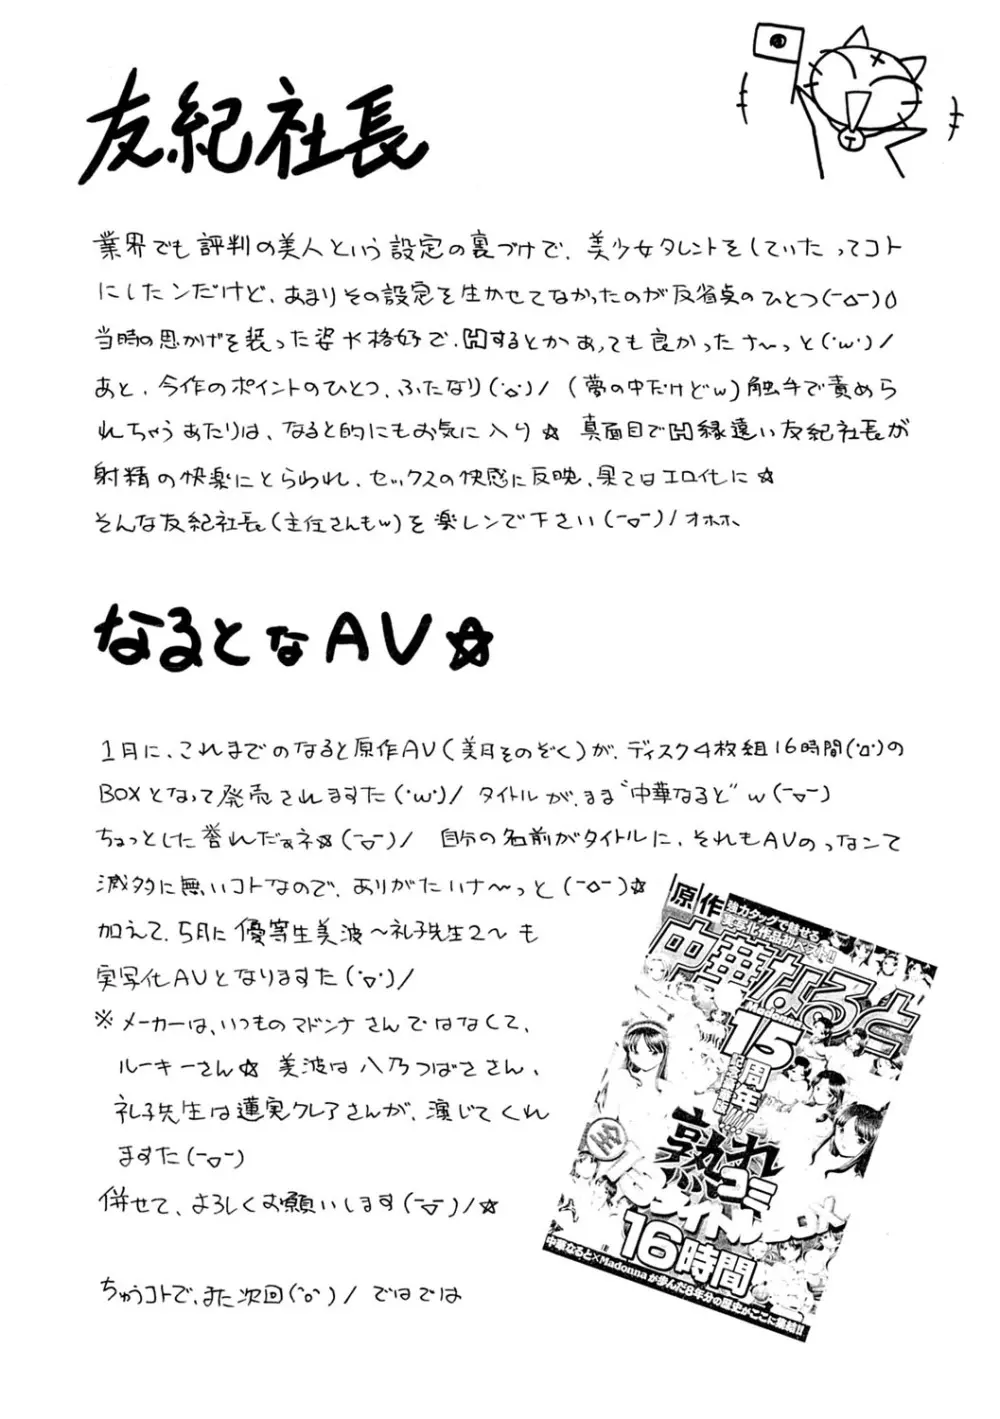 友紀社長
業界でも評判の美人という設定の裏づけで、美少女タレントをしていたってコト
にしたンだけど、あまりその設定を生かせてなかったのが反省点のひとつ(ーдー)
当時の思かげを装った姿や格好で、Hするとかあっても良かったナ〜っと(･ω･)/
あと、今作のポイントのひとつ、ふたなり(ﾟдﾟ)/ (夢の中だけどw)触手で責めら
れちゃうあたりは、なると的にもお気に入り☆ 真面目でH縁遠い友紀社長が
射精の快楽にとらわれ、セックスの快感に反映、果てはエロ化に☆
そんな友紀社長(主任さんもw)を楽しンで下さい(ー▽ー)/オホホ、
なるとなAV☆
1月に、これまでのなると原作AV(美月そのぞく)が、ディスク4枚組16時間(ﾟдﾟ)の
BOXとなって発売されますた(･ω･)/ タイトルが、まま“中華なると”w(ー▽ー)
ちょっとした誉れだぁネ☆(ー▽ー)/ 自分の名前がタイトルに、それもAVのっなンて
滅多に無いコトなので、ありがたいナ〜っと(ーдー)☆
加えて、5月に優等生美波〜礼子先生2〜も
実写化AVとなりますた(ﾟ▽ﾟ)/
※メーカーは、いつものマドンナさんではなくて、
ルーキーさん☆ 美波は八乃つばささん、
礼子先生は蓮実クレアさんが、演じてくれ
ますた(ー▽ー)
併せて、よろしくお願いします(ー▽ー)/☆
ちゅうコトで、また次回(ﾟoﾟ)/ ではでは
原作
強力タッグで魅せる
実写化作品初ベスト!!
中華なると
Madonna
15周年
熟れコミ
全13タイトルBOX
16時間
中華なると×Madonnaが歩んだ8年分の歴史がここに集結!!
T